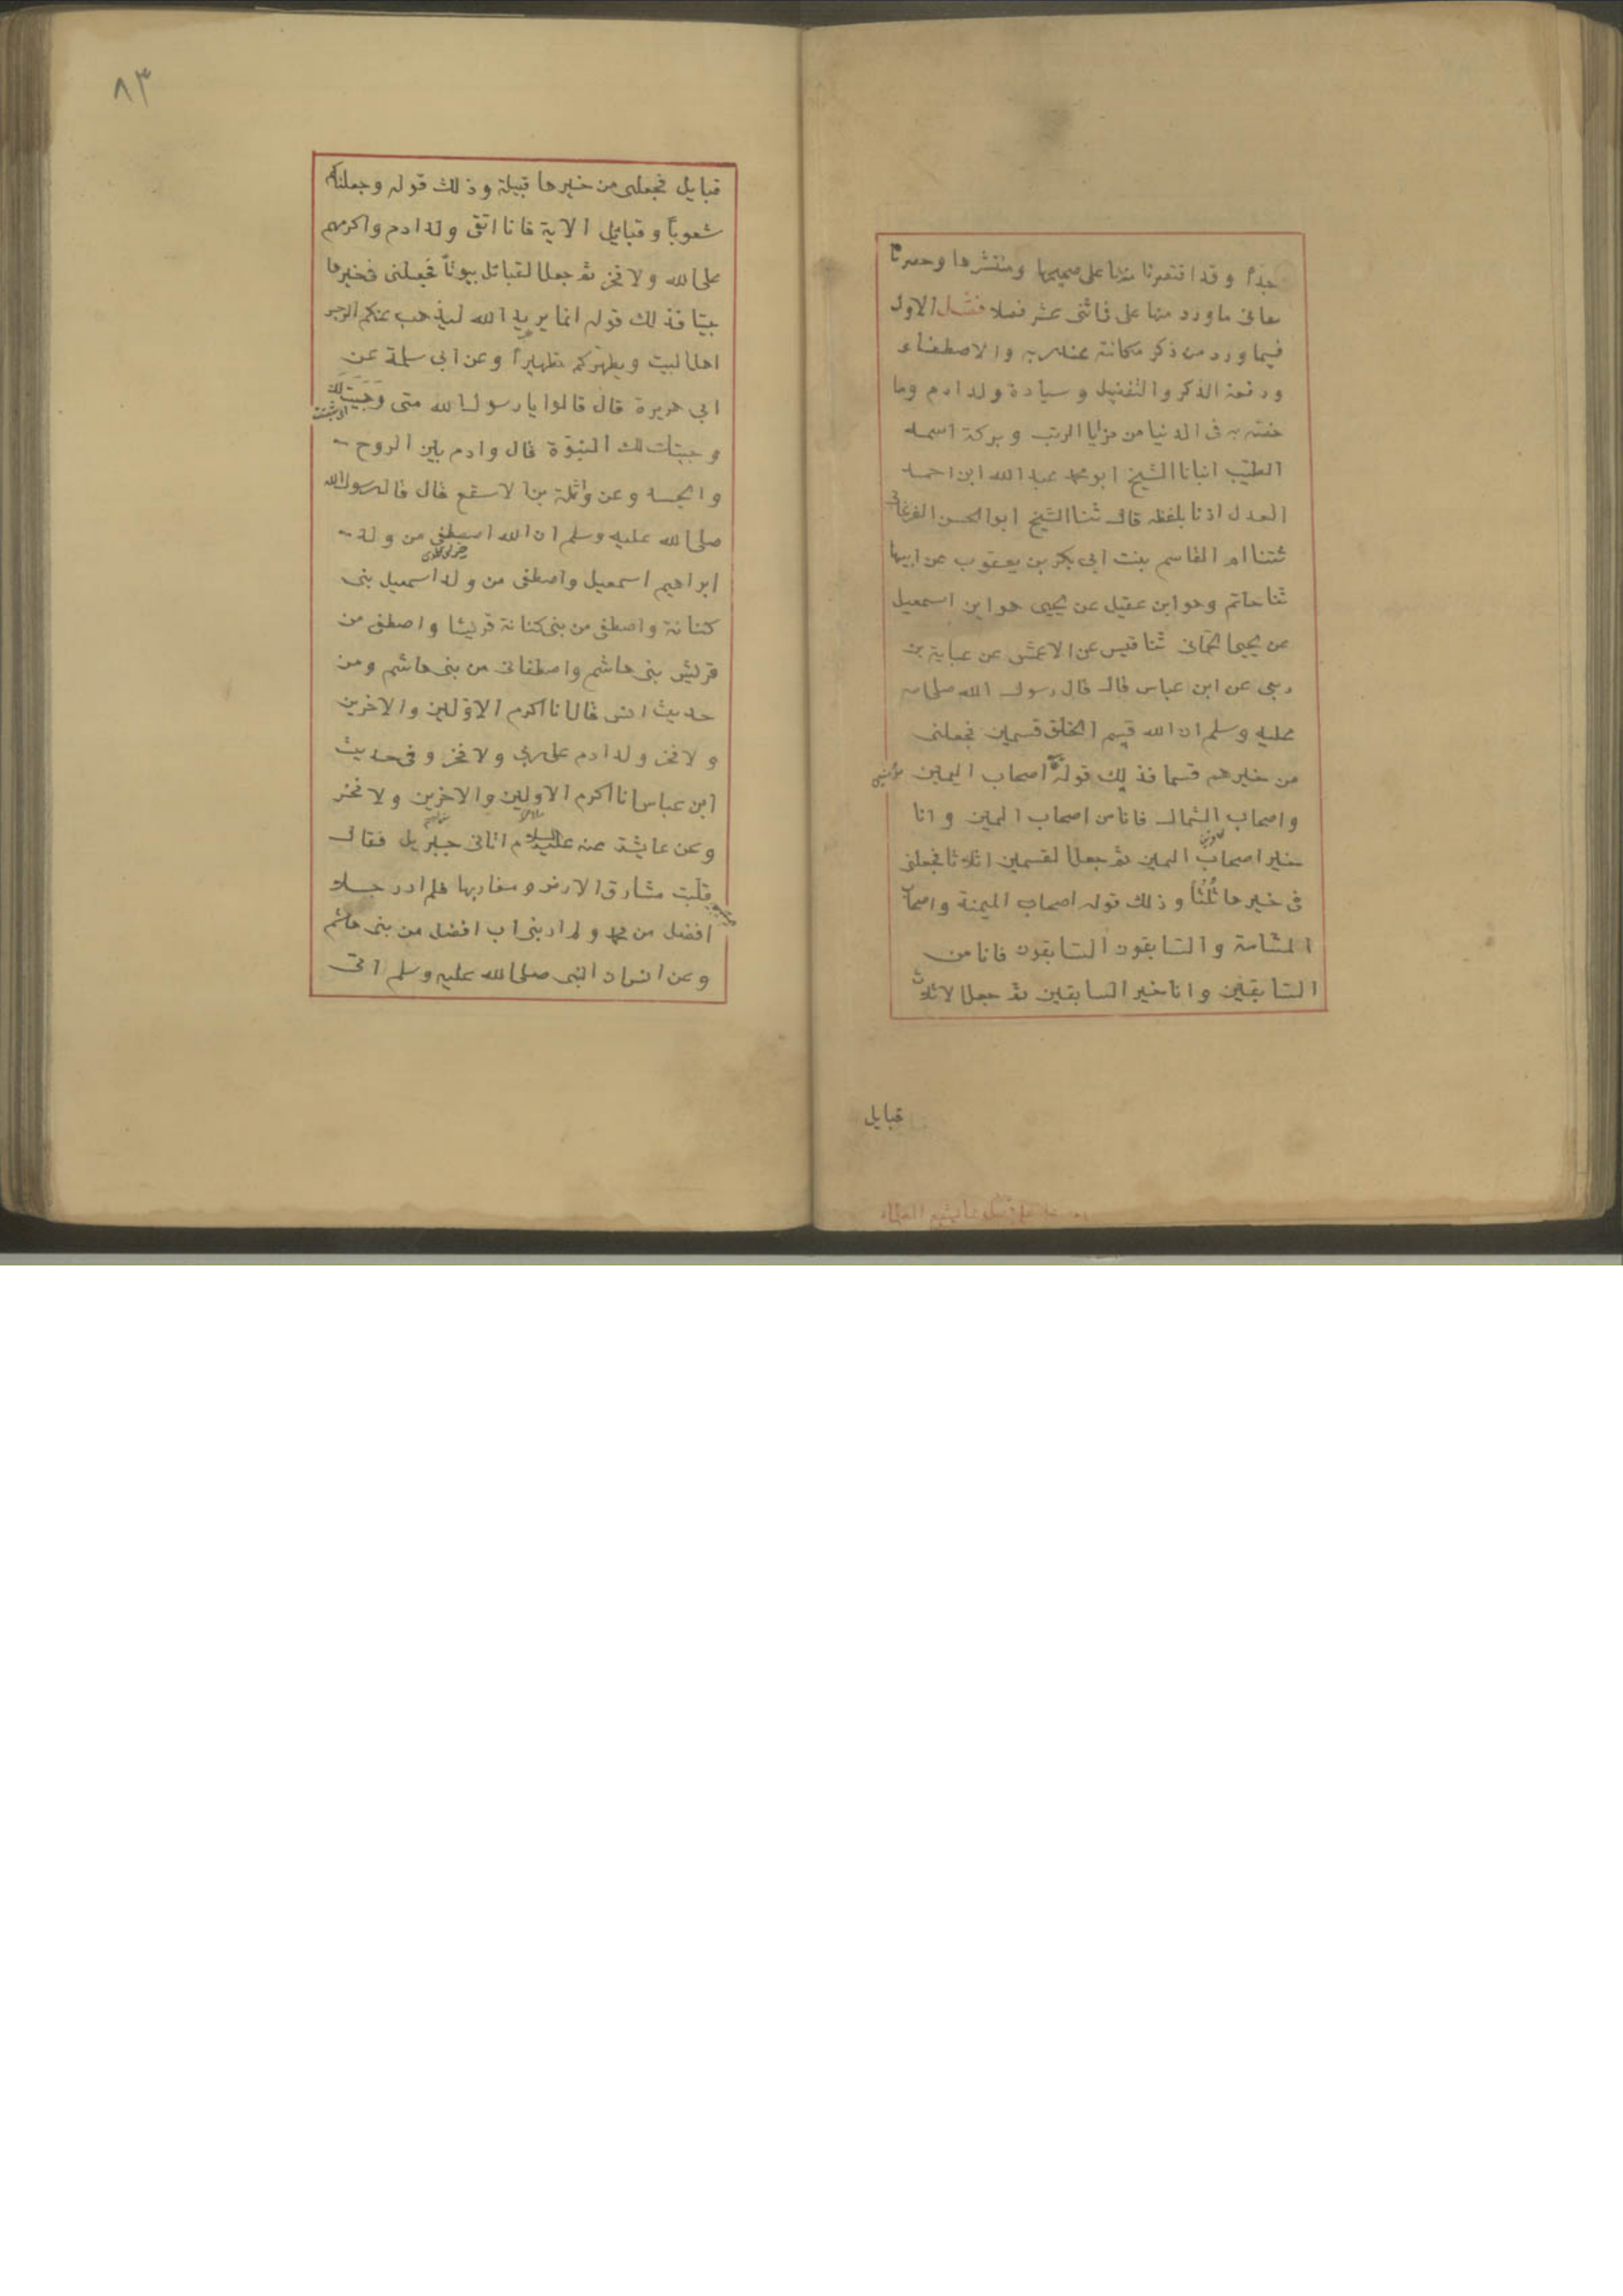 جدا وقد اقتصرنا منها على صحيحها ومنتشرها وحصرنا
معانى ماورد منها على فى اثنى عشر فصلا فصل الاول
فيما ورد من ذكر مكانته عند ربه والاصطفاء
ورفعة الذكر والتفضيل وسيادة ولد ادم وما
خصه به فى الدنيا من مزايا الرتب وبركة اسمه
الطيب انبانا الشيخ ابو محمد عبد الله ابن احمد
العدل اذنا بلفظه قال ثنا الشيخ ابو الحسن الفرغانى
ثتنا ام القاسم بنت ابى بكر بن يعقوب عن ابيها
ثنا حاتم وهو ابن عقيل عن يحيى هو ابن اسمعيل
عن يحيى الحمانى ثنا قيس عن الاعمش عن عباية بن
ربعى عن ابن عباس قال قال رسول الله صلى الله
عليه وسلم ان الله قسم الخلق قسمين فجعلنى
من خيرهم قسما فذلك قوله اصحاب اليمين
واصحاب الشمال فانا من اصحاب اليمين وانا
خير اصحاب اليمين ثم جعل القسمين اثلاثا فجعلنى
فى خيرها ثلثا وذلك قوله اصحاب الميمنة واصحاب
المشامة والسابقون السابقون فانا من
السابقين وانا خير السابقين ثم جعل الاثلاث
قبايل
٨٣
قبايل فجعلنى من خيرها قبيلة وذلك قوله وجعلناكم
شعوباً وقبايل الاية فانا اتقى ولد ادم واكرمهم
على الله ولا فخر ثم جعل القبائل بيوتاً فجعلنى فى خيرها
بيتا فذلك قوله انما يريد الله ليذهب عنكم الرجس
اهل البيت ويطهركم تطهيراً وعن ابى سلمة عن
ابى هريرة قال قالوا يا رسول الله متى وَجَبَتْ لَكَ
وجبت لك النبوّة قال وادم بين الروح
والجسد وعن واثلة بن الاسقع قال قال رسول الله
صلى الله عليه وسلم ان الله اصطفى من ولد
ابراهيم اسمعيل واصطفى من ولد اسمعيل بنى
كنانة واصطفى من بنى كنانة قريشا واصطفى من
قريش بنى هاشم واصطفانى من بنى هاشم ومن
حديث انس قال انا اكرم الاوّلين والاخرين
ولا فخر ولد ادم على ربى ولا فخر وفى حديث
ابن عباس انا اكرم الاولين والاخرين ولا فخر
وعن عايشة عنه عليه السلام اتانى جبريل فقال
قلبت مشارق الارض ومغاربها فلم ار رجلا
افضل من محمد ولم ار بنى اب افضل من بنى هاشم
وعن انس ان النبى صلى الله عليه وسلم اتى